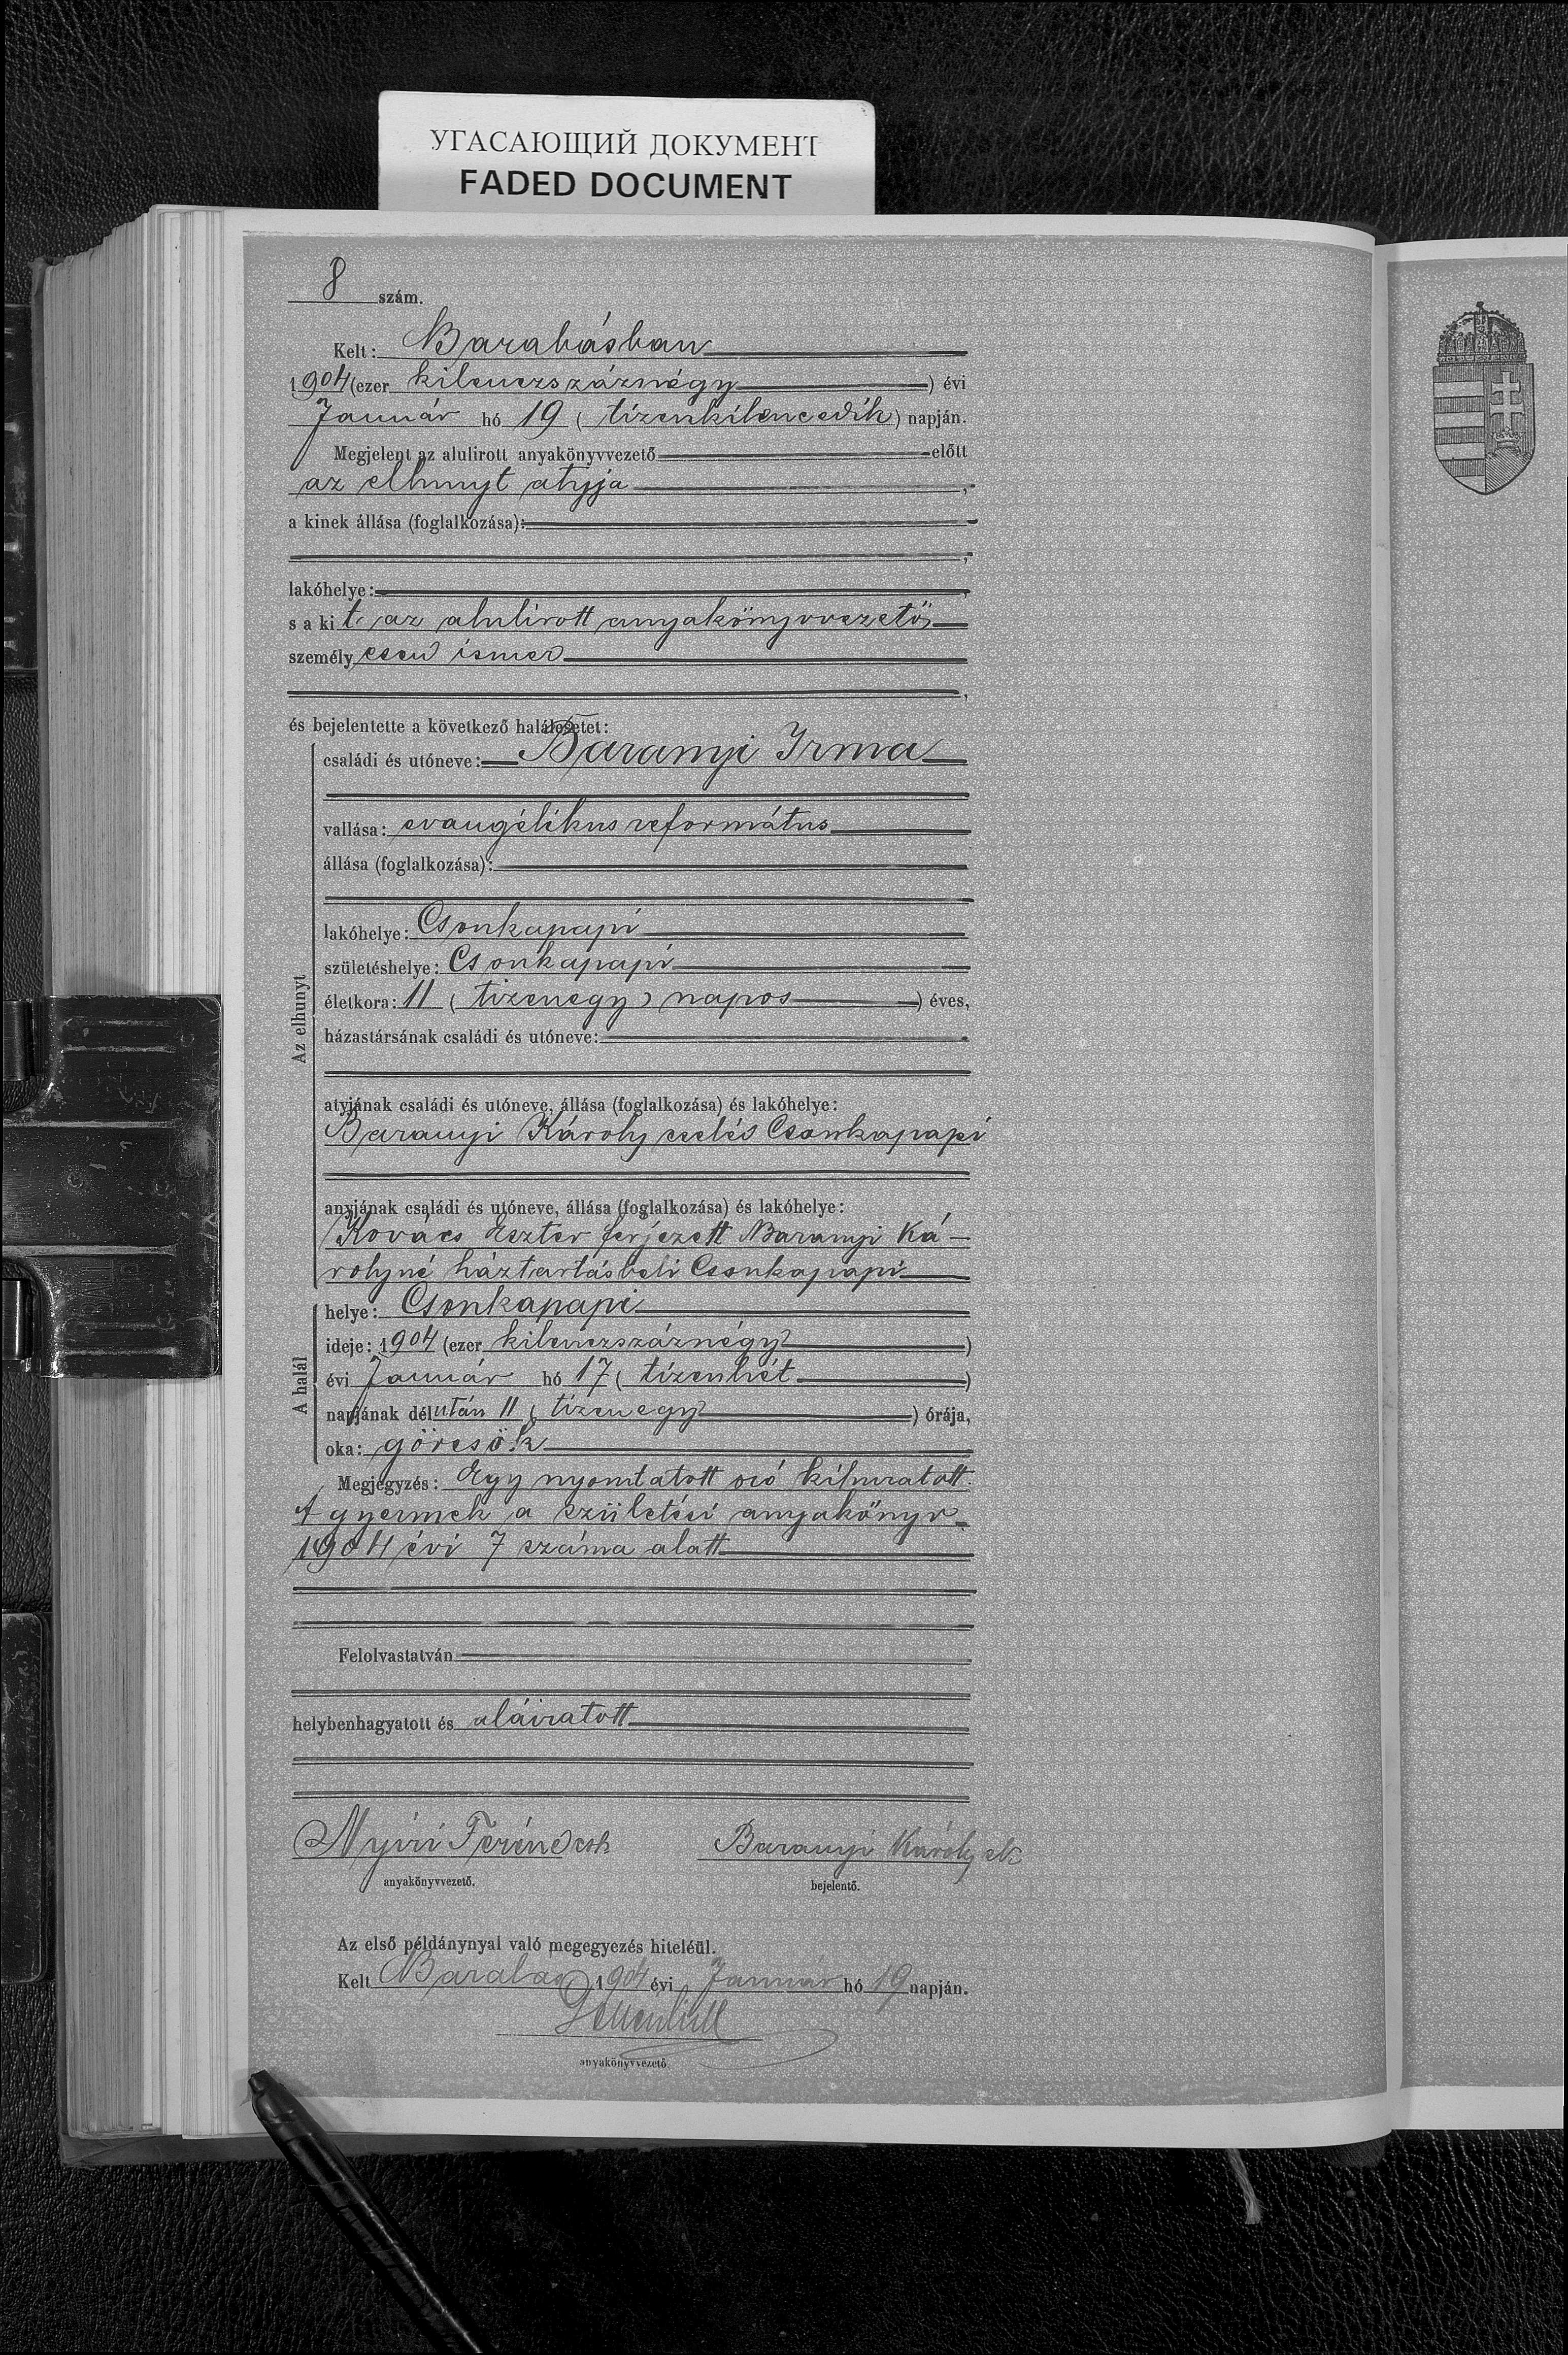 УГАСАЮЩИЙ ДОКУМЕНТ
FADED DOCUMENT
8 szám.
Kelt: Barabásban
1904 (ezer kilenczszáznégy) évi
Január hó 19 (tizenkilencedik) napján.
Megjelent az alulirott anyakönyvvezető előtt
az elhunyt atyja,
a kinek állása (foglalkozása):
,
lakóhelye: ,
s a kit az alulirott anyakönyvvezető
személyesen ismer
,
és bejelentette a következő halálesetet:
Az elhunyt
családi és utóneve: Baranyi Irma
vallása: evangélikus református
állása (foglalkozása):
lakóhelye: Csonkapapi
születéshelye: Csonkapapi
életkora: 11 (tizenegy) napos ) éves,
házastársának családi és utóneve:
atyjának családi és utóneve, állása (foglalkozása) és lakóhelye:
Baranyi Károly cselés Csonkapapi
anyjának családi és utóneve, állása (foglalkozása) és lakóhelye:
Kovács Eszter férjezett Baranyi Ká-
rolyné háztartásbeli Csonkapapi
A halál
helye: Csonkapapi
ideje: 1904 (ezer kilenczszáznégy)
évi Január hó 17 (tizenhét)
napjának délután 11 (tizenegy) órája,
oka: görcsök
Megjegyzés: Egy nyomtatott szó kihuzatott.
A gyermek a születési anyakönyv
1904 évi 7 száma alatt
Felolvastatván
helybenhagyatott és aláiratott
Nyíri Ferencz Baranyi Károly sk
anyakönyvvezető. bejelentő.
Az első példánynyal való megegyezés hiteléül.
Kelt Barabas 1904 évi Január hó 19 napján.
anyakönyvvezető